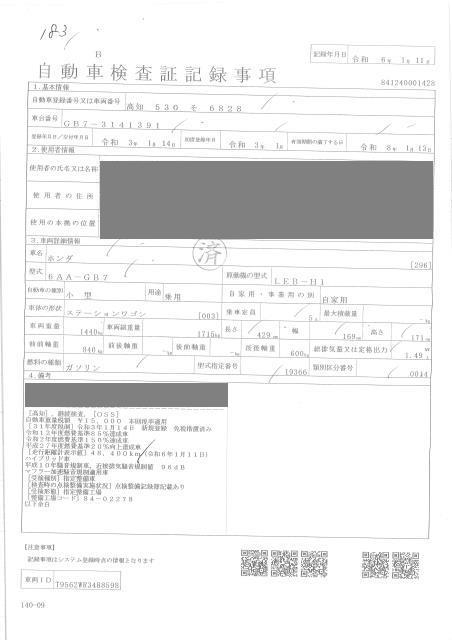 183
B
記録年月日 令和 6年 1月 11日
自動車検査証記録事項
841240001428
1.基本情報
自動車登録番号又は車両番号 高知 530 そ 6828
車台番号 GB7-3141391
登録年月日／交付年月日 令和 3年 1月 14日 初度登録年月 令和 3年 1月 有効期間の満了する日 令和 8年 1月 13日
2.使用者情報
使用者の氏名又は名称
使用者の住所
使用の本拠の位置
3.車両詳細情報
済
車名 ホンダ [296]
型式 6AA-GB7 原動機の型式 LEB-H1
自動車の種別 小型 用途 乗用 自家用・事業用の別 自家用
車体の形状 ステーションワゴン [003] 乗車定員 5人 最大積載量 -kg
車両重量 1440kg 車両総重量 1715kg 長さ 429cm 幅 169cm 高さ 171cm
前前軸重 840kg 前後軸重 -kg 後前軸重 -kg 後後軸重 600kg 総排気量又は定格出力 1.49L
燃料の種類 ガソリン 型式指定番号 19366 類別区分番号 0014
4.備考
[高知], 継続検査, [OSS]
自動車重量税額 ¥15,000 本則税率適用
[31年度税制] 令和3年1月14日 新規登録 免税措置済み
令和12年度燃費基準85%達成車
令和2年度燃費基準150%達成車
平成27年度燃費基準20%向上達成車
[走行距離計表示値] 48,400km (令和6年1月11日)
ハイブリッド車
平成10年騒音規制車、近接排気騒音規制値 96dB
マフラー加速騒音規制適用車
[受検種別] 指定整備車
[検査時の点検整備実施状況] 点検整備記録簿記載あり
[受検形態] 指定整備工場
[整備工場コード] 84-02278
以下余白
【注意事項】
記録事項はシステム登録時点の情報となります
車両ID T9562WH3488598
140-09